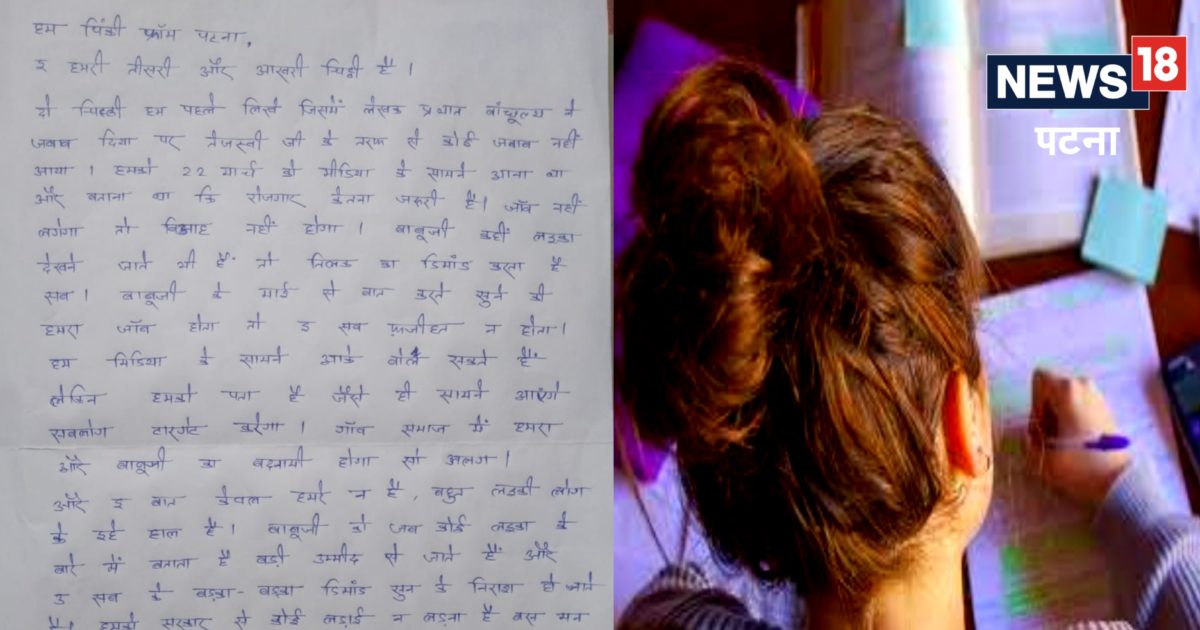 हम पिंकी फ्रॉम पटना,
इ हमरी तीसरी और आखरी चिट्ठी है।
दो चिट्ठी हम पहले लिखे जिसमें लेखक प्रभात बांधुल्य ने
जवाब दिया पर तेजस्वी जी के तरफ से कोई जवाब नहीं
आया। हमको 22 मार्च को मीडिया के सामने आना था
और बताना था कि रोजगार केतना जरूरी है। जॉब नहीं
लगेगा तो बिआह नहीं होगा। बाबूजी कहीं लड़का
देखने जाते भी हैं तो तिलक का डिमांड करता है
सब। बाबूजी के माई से बात करते सुने की
हमरा जॉब होता तो इ सब फ़जीहत न होता।
हम मिडिया के सामने आके बोल सकते हैं
लेकिन हमको पता है जैसे ही सामने आएंगे
सबलोग टारगेट करेगा। गाँव समाज में हमरा
और बाबूजी का बदनामी होगा सो अलग।
और इ बात केवल हमरे न है, बहुत लड़की लोग
के इहे हाल है। बाबूजी को जब कोई लड़का के
बारे में बताता है बड़ी उम्मीद से जाते हैं और
उ सब के बड़का-बड़का डिमांड सुन के निराश हो जाते
है। हमको सरकार से कोई लड़ाई न लड़ना है बस मन
NEWS 18
पटना